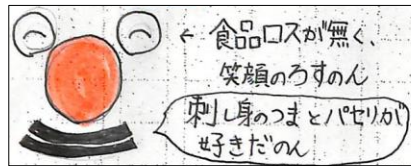 ← 食品ロスが無く、
笑顔のろすのん
刺し身のつまとパセリが
好きだのん